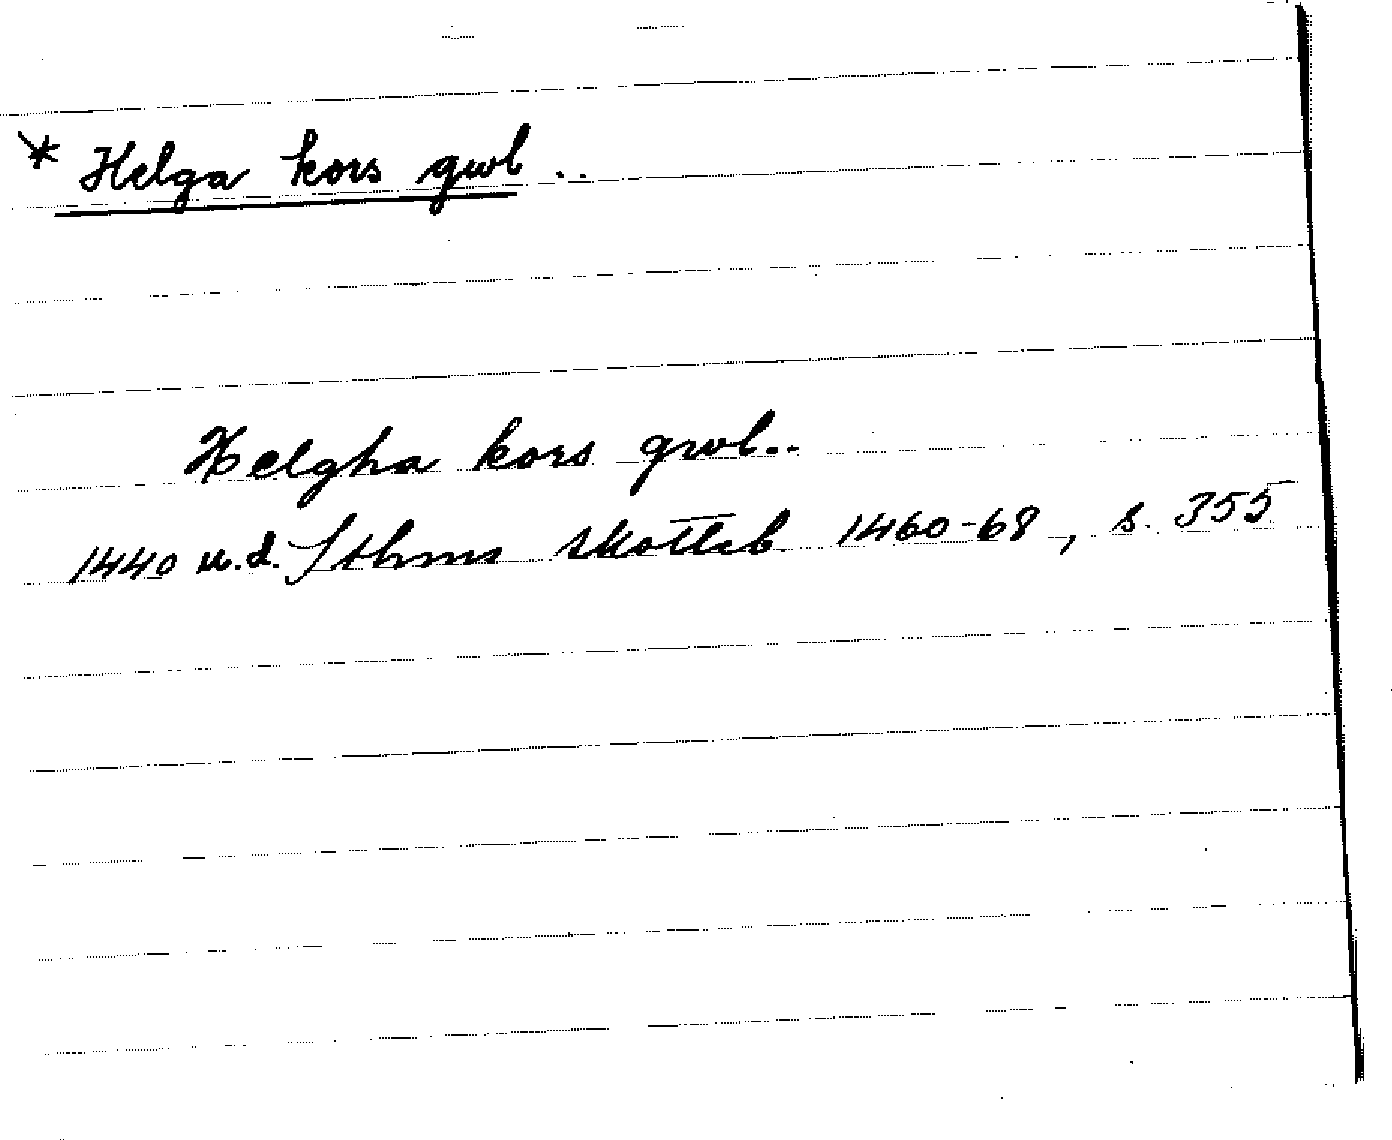 * Helga kors gwl ..
Helgha kors gwl..
1440 u.d. Sthms skotteb 1460-68, s. 355